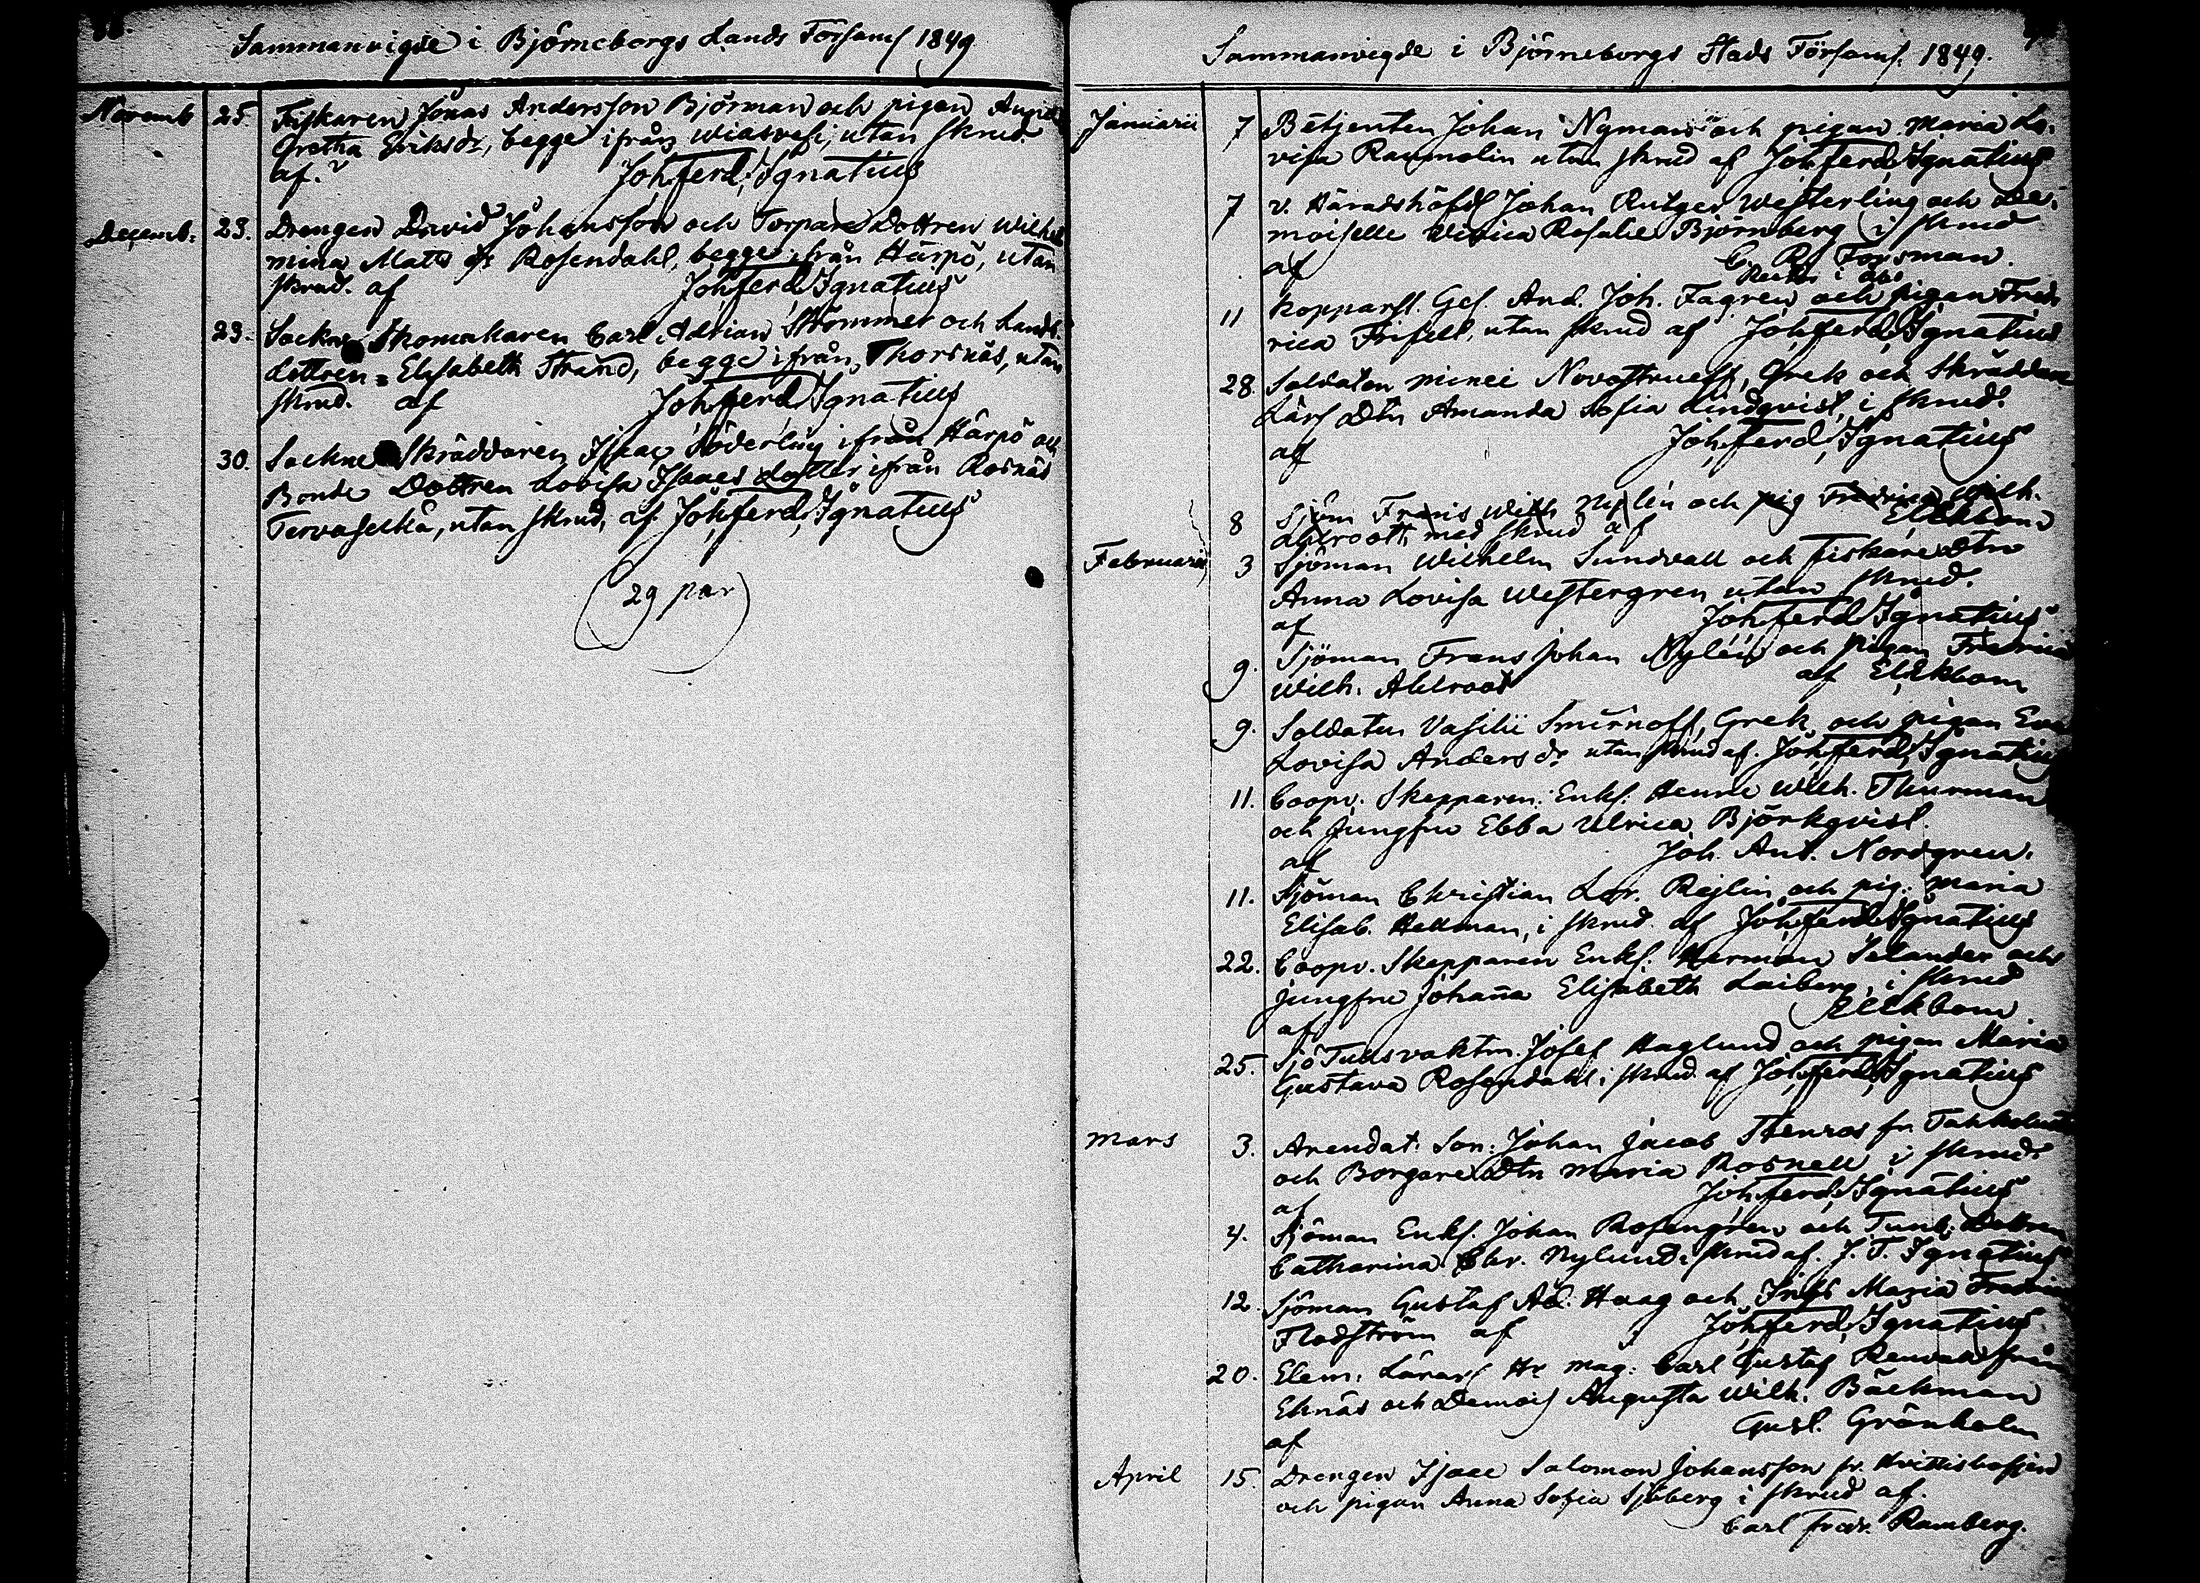 Sammanvigde i Björneborgs Lands Församl 1849
Novemb 25. Fiskaren Jonas Andersson Björman och pigan
Gretha Eriksdr, begge ifrån Wiasvesi, utan skrud.
af. Joh. ferd. Ignatius
Decemb. 23. Drengen David Johansson och Torpare Dottren Wilhel
mina Matts dr Rosendahl, begge ifrån Härpö, utan
skrud. af Joh. ferd. Ignatius
23. Sockne Skomakaren Carl Adrian Strömmer och Landb.
dottren Elisabeth Strand, begge ifrån Thorsnäs, utan
skrud. af Joh. ferd. Ignatius
30. Sockne Skräddaren Isaac Söderling ifrån Härpö och
Bonde Dottren Lovisa Isaacs dotter ifrån Rosnäs
Tervaselkä, utan skrud, af Joh. ferd. Ignatius
29 par
Sammanvigde i Björneborgs Stads Församl. 1849.
Januarii 7 Betjenten Johan Nyman och pigan Maria Lo-
visa Raumolin utan skrud af Joh. ferd. Ignatius
7 v. Häradshöfd Johan Rutger Westerling och De-
moiselle Vivica Rosalie Björnberg i skrud
af Forsman.
11 Kopparsl. Ges. And. Joh. Fagren och pigan Fred
rica Frisell, utan skrud af Joh. ferd. Ignatius
28. Soldaten Minei Grek och Skräddare
Lärl Dtn Amanda Sofia Lindqvist, i skrud.
af Joh. ferd. Ignatius
8 Sjöm Frans Wilh Nylén och pig Fredrica Wilh.
Ahlroot, med skrud af Elekbom
Februarii 3 Sjöman Wilhelm Sundvall och fiskare dtn
Anna Lovisa Westergren utan skrud.
af Joh. ferd. Ignatius
9. Sjöman Frans Johan Nylén och pigan Fredrica
Wilh. Ahlroot af Elekbom
9. Soldaten Vasilii Smirnoff, Grek och pigan Eva
Lovisa Anders dr utan skrud af. Joh. ferd. Ignatius
11. Coopv. Skepparen Enkl. Wilh. Thurman
och Jungfru Ebba Ulrica Björkqvist
af Joh. Ant. Nordgren.
11. Sjöman Christian Lor. Rejlin och pig. Maria
Elisab. Hellman, i skrud. af Joh. ferd. Ignatius
22. Coopv. Skepparen Enkl. Herman Selander och
jungfru Johanna Elisabeth Laiberg, i skrud
af Elekbom.
25. Sjö Tullsvaktm. Josef Haglund och pigan Maria
Gustava Rosendahl i skrud af Joh. ferd. Ignatius
Mars 3. Arendat. Son. Johan Jacob Stenros fr. Tahkoluoto
och Borgare Dtn Maria Rosnell, i skrud
af Joh. ferd. Ignatius
4. Sjöman Enkl. Johan Rosengren och Dottren
Catharina Chr. Nylund i skrud af. J. F. Ignatius
12. Sjöman Gustaf Ad. Haag och Maria
Flodström af Joh. ferd. Ignatius
20. Elem. Lärar Hr Mag. Carl Gustaf Renvall från
Eknäs och Demois Augusta Wilh. Bäckman
af Gust. Grönholm
April 15. Drengen Isaac Salomon Johansson fr.
och pigan Anna Sofia Sjöberg i skrud af.
Carl fredr. Ramberg.